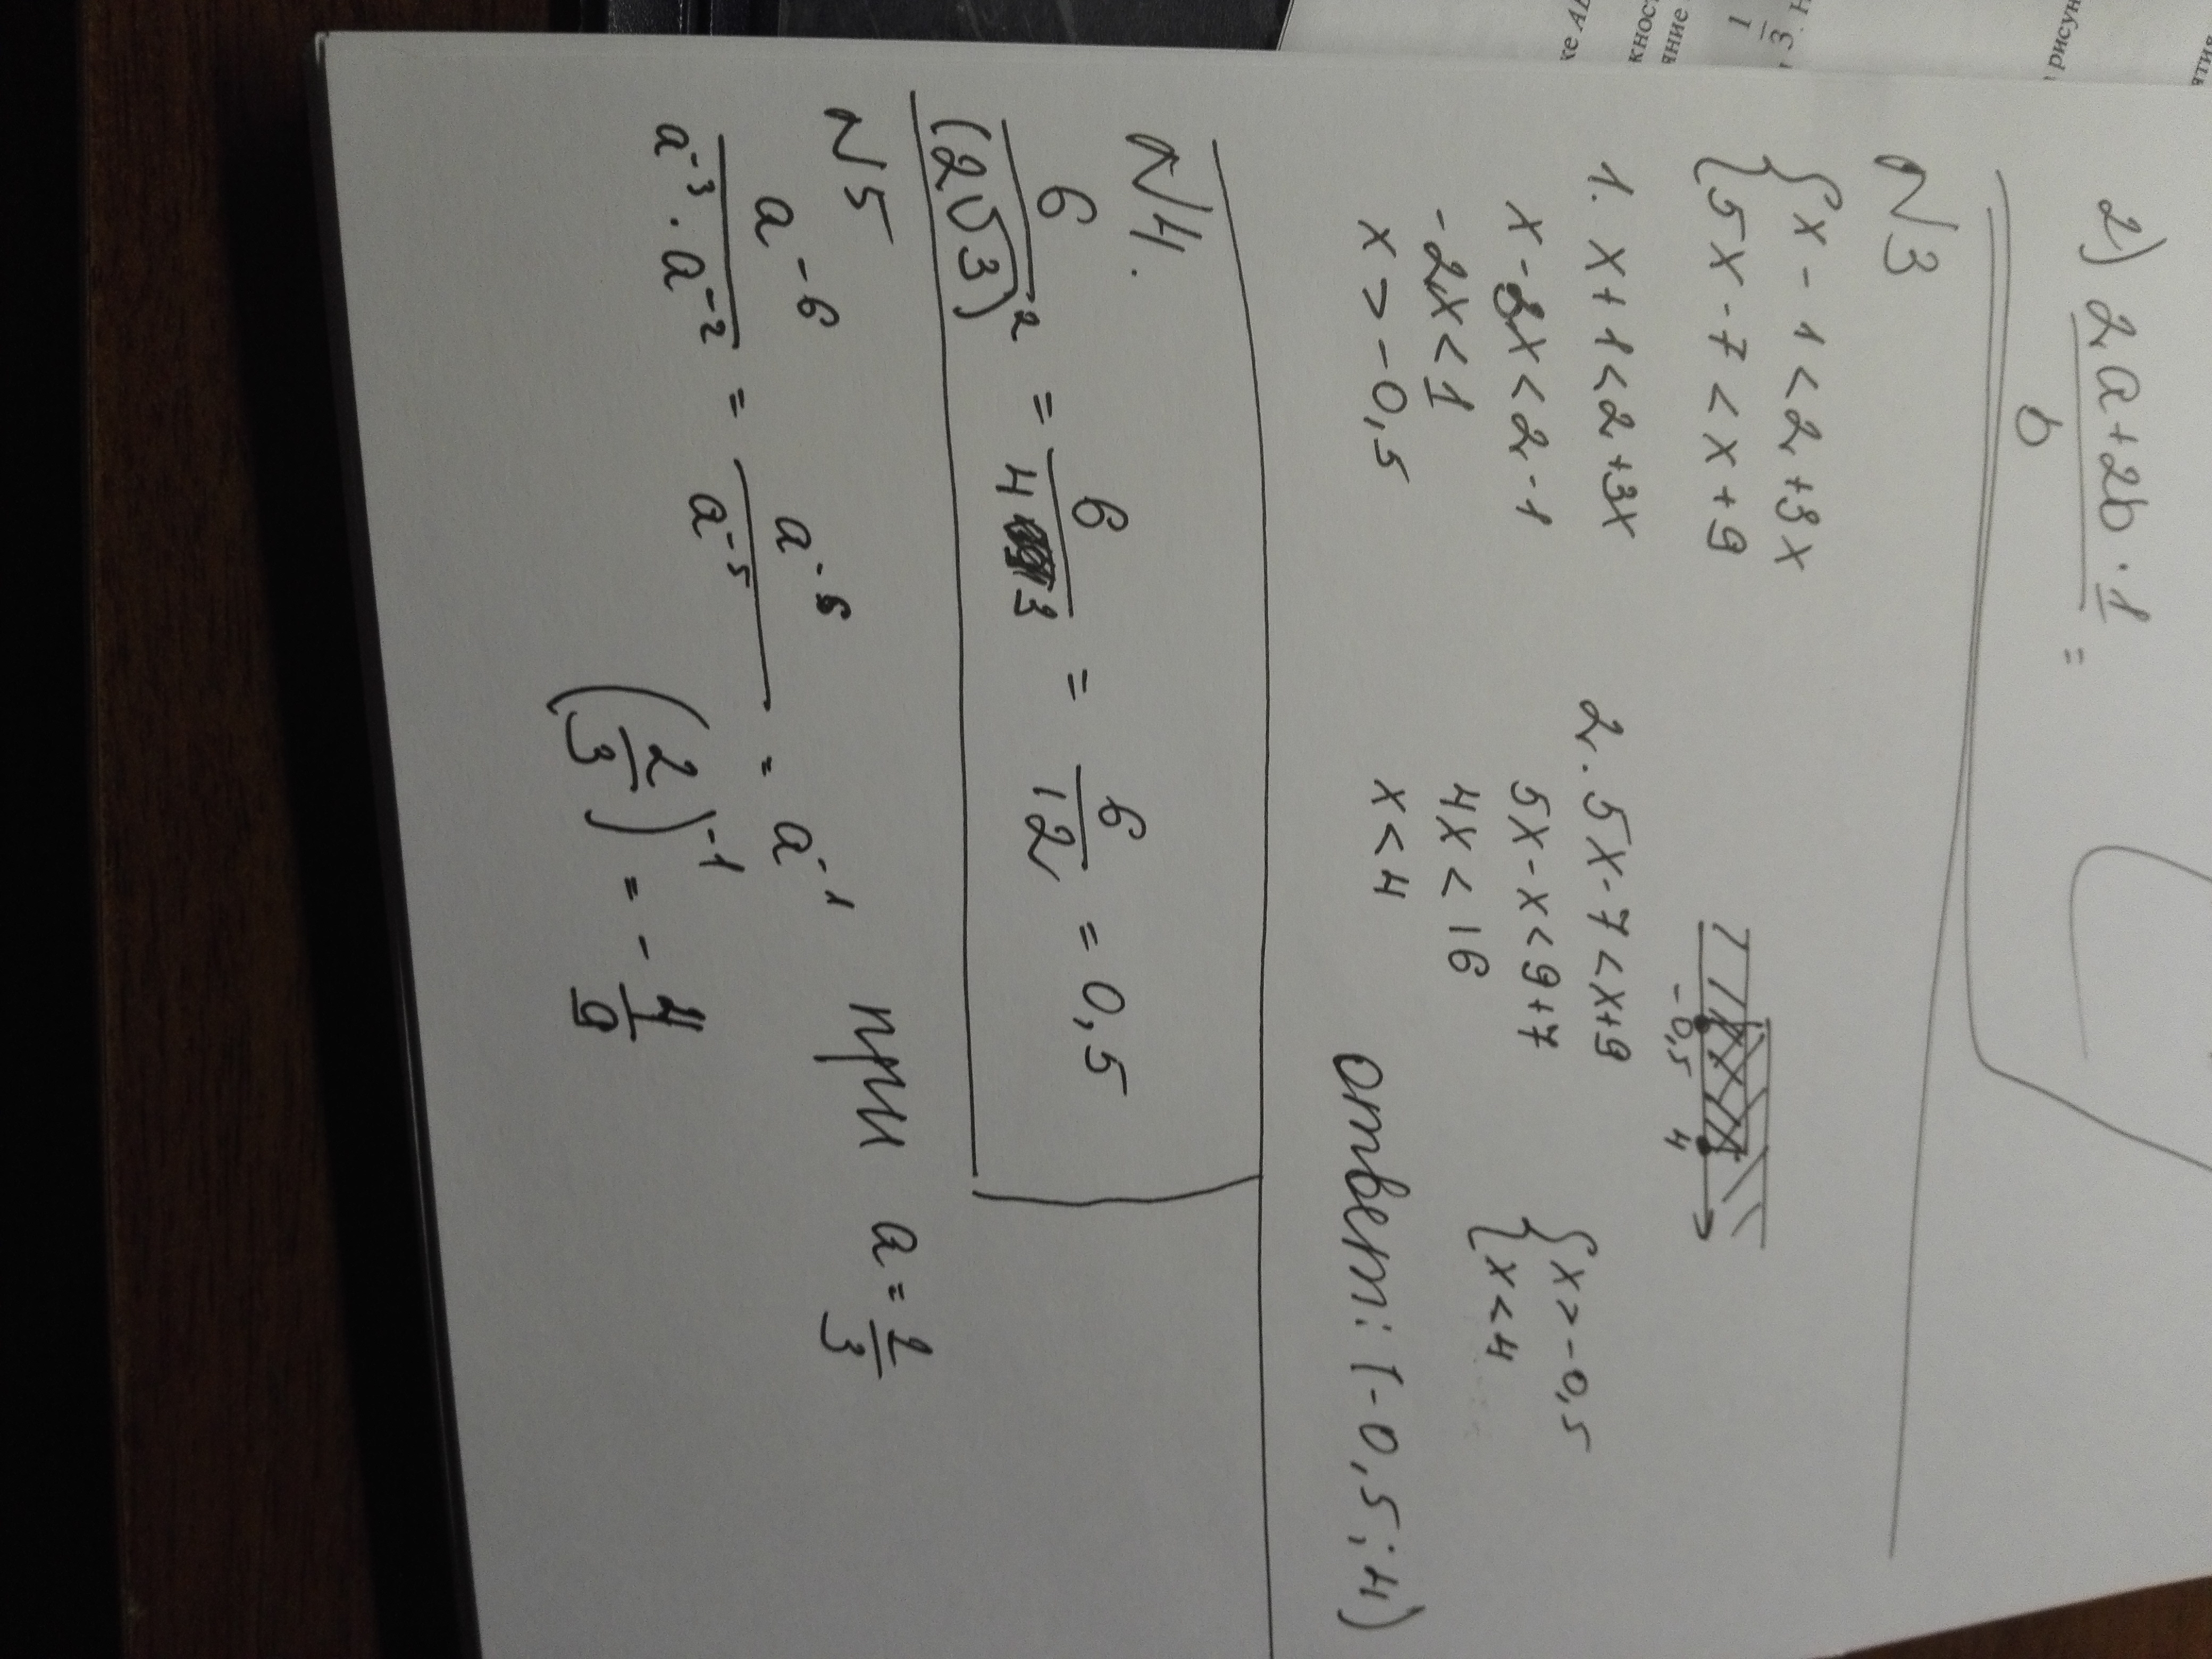 2) 2a+2b · 1 =
b
N3
{ x - 1 < 2 + 3x
{ 5x - 7 < x + 9
1. x + 1 < 2 + 3x
x - 3x < 2 - 1
-2x < 1
x > -0,5
2. 5x - 7 < x + 9
5x - x < 9 + 7
4x < 16
x < 4
-0,5 4
{ x > -0,5
{ x < 4
Ответ: (-0,5; 4)
N4.
6/(2√3)² = 6/(4 3) = 6/12 = 0,5
N5
a⁻⁶/(a⁻³ · a⁻²) = a⁻⁶/a⁻⁵ = a⁻¹ при a = 2/3
(2/3)⁻¹ = - 4/9
1
3
рисун